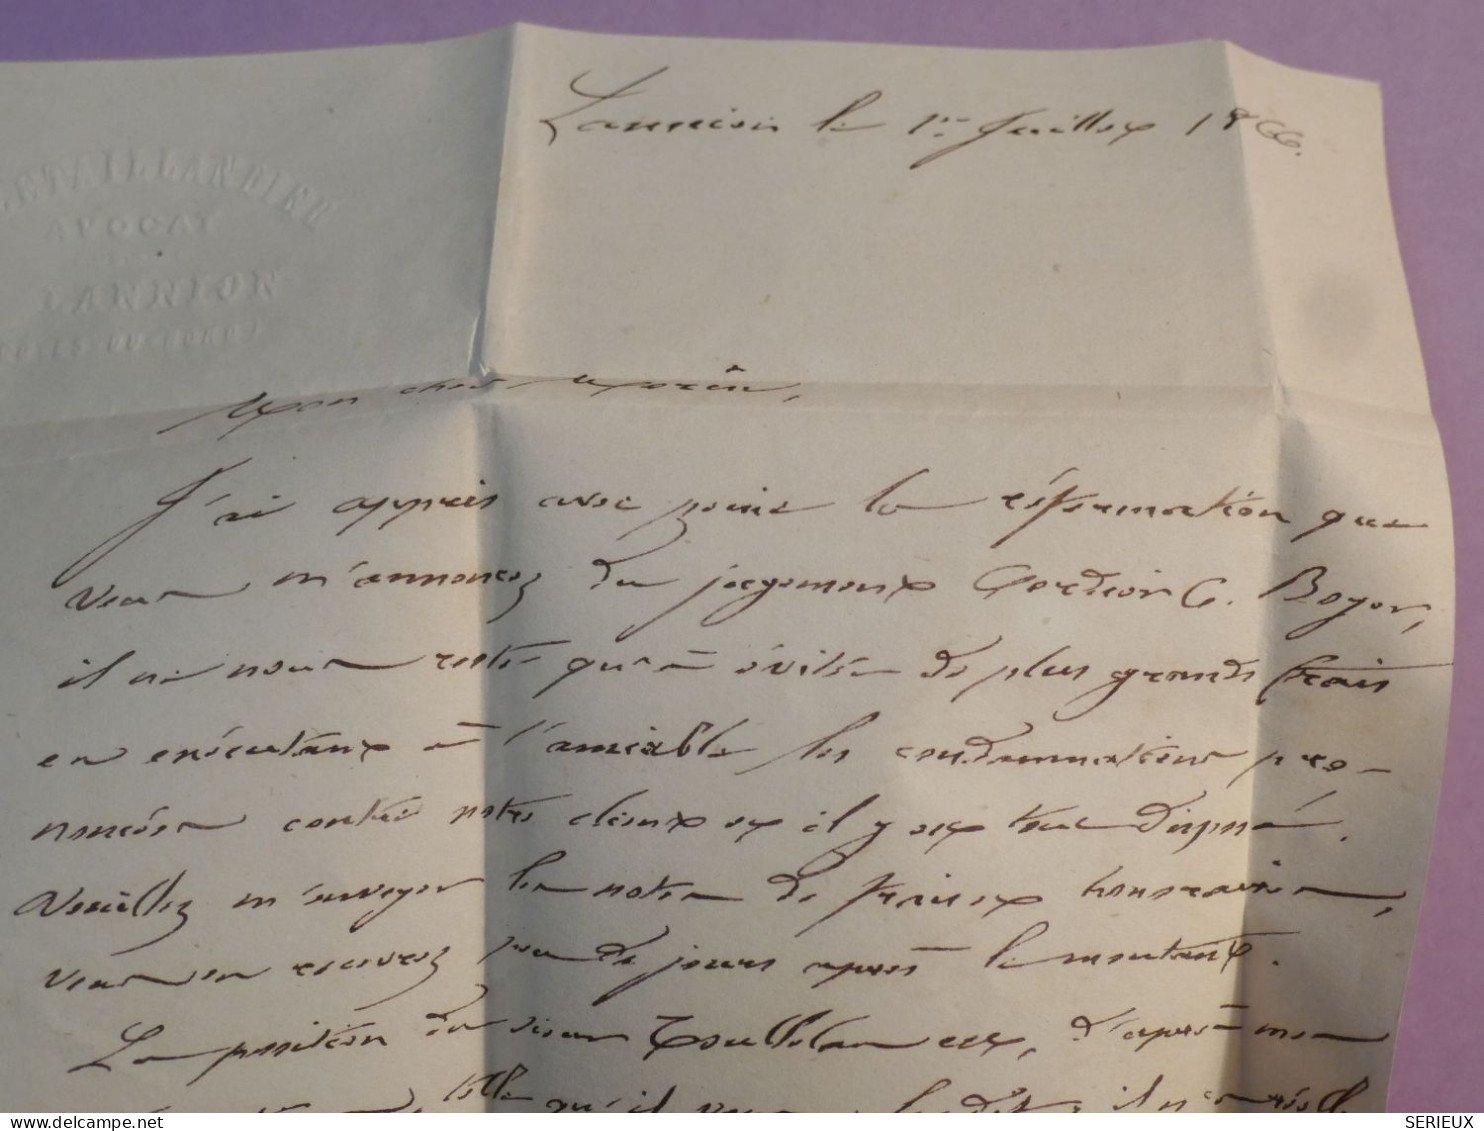 LETAILLANDIER
AVOCAT
LANNION
CÔTES DU NORD
Lannion le 1er Juillet 1866.
Mon cher Morin,
J'ai appris avec peine la réformation que
vous m'annoncez du jugement Boyer,
il ne nous reste qu'à éviter de plus grands frais
en exécutant à l'amiable les condamnations pro-
noncées contre notre client et il y est tout disposé.
Veuillez m'envoyer les notes de frais et honoraires,
vous en recevrez peu de jours après le montant.
La position du sieur Toullelan est, d'après mon
telle qu'il
delcampe.net
SERIEUX